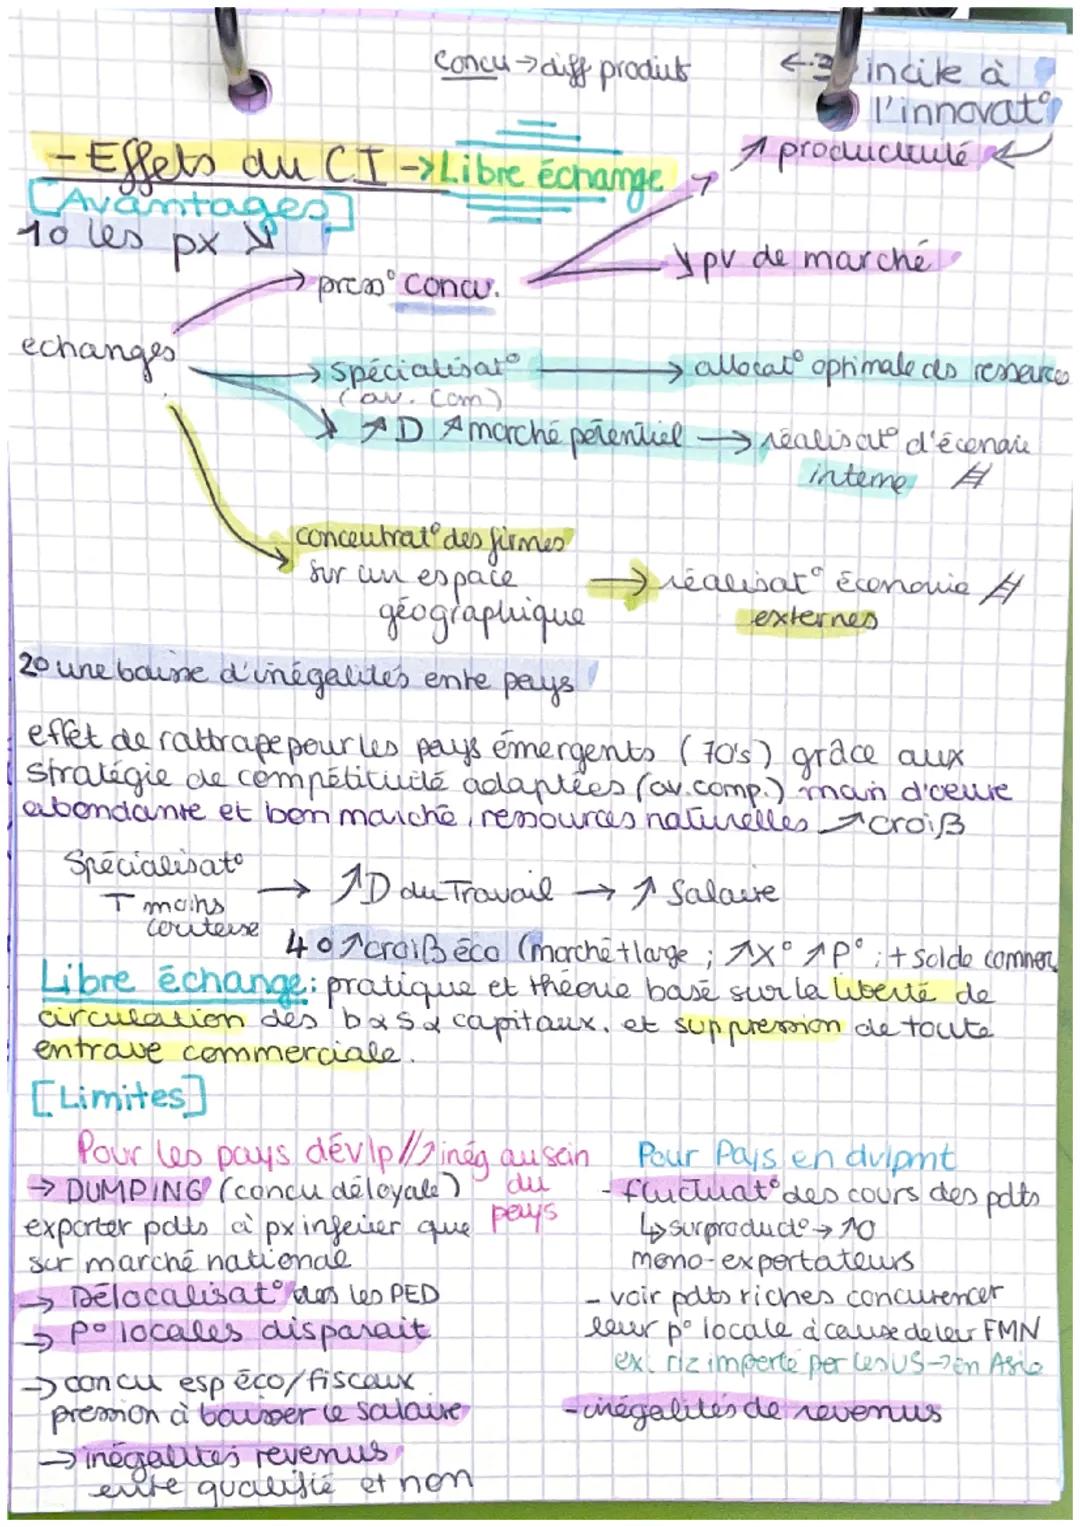 concu → diff produits
incite à
l'innovat°
- Effets du CI → Libre échange
↗ productivité
[Avantages]
1o les px ↘
↘ pv de marché
→ press° concu.
echanges
→ spécialisat° → allocat° optimale des ressources
(av. Com)
↗D ↗marché potentiel → réalisat° d'économie
interne
concentrat° des firmes
sur un espace
géographique
→ réalisat° économie
externes
2o une baisse d'inégalités entre pays
effet de rattrape pour les pays émergents (70's) grâce aux
stratégie de compétitivité adaptées (av.comp.) main d'œuvre
abondante et bon marché, ressources naturelles ↗ croiß
Spécialisat°
T moins
couteuse
→ ↗D du Travail → ↗ Salaire
4o ↗croiß éco (marché + large ; ↗X° ↗P° ; + solde commer
Libre échange: pratique et théorie basé sur la liberté de
circulation des b & s & capitaux. et suppression de toute
entrave commerciale.
[Limites]
Pour les pays dévlp // ↗ inég au sein
du
pays
→ DUMPING (concu déloyale)
exporter pdts à px inférieur que
sur marché national
→ Délocalisat° dans les PED
→ P° locales disparait
→ concu esp éco/fiscaux
pression à baisser le salaire
→ inégalités revenus
entre qualifié et non
Pour Pays en dvlpmt
- fluctuat° des cours des pdts
↳ surproduct° → ↗O
mono-exportateurs
- voir pdts riches concurencer
leur p° locale à cause de leur FMN
ex: riz importé par les US → en Asie
- inégalités de revenus